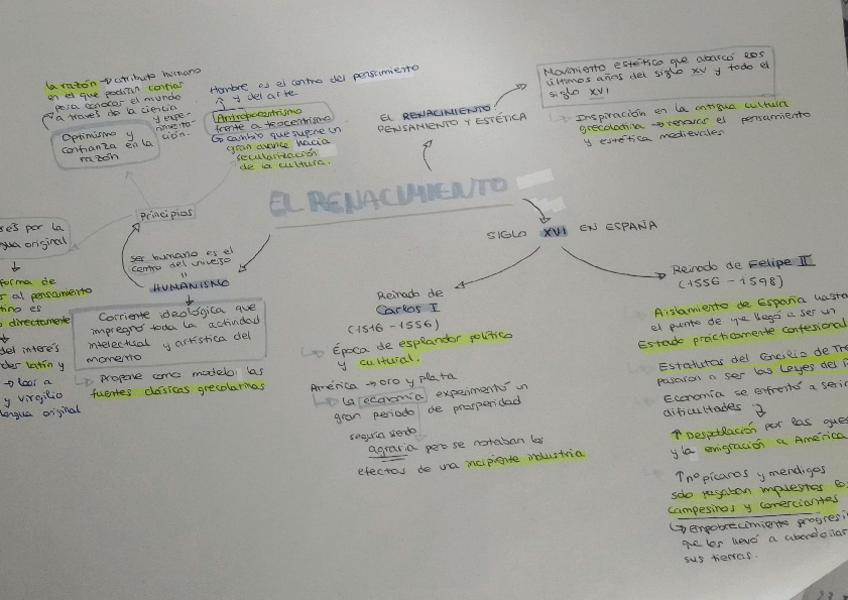 la razón → atributo humano
en el que podían confiar
para conocer el mundo
a través de la ciencia
y expe-
rimenta-
ción.
Optimismo y
confianza en la
razón
Hombre es el centro del pensamiento
y del arte
Antropocentrismo
frente a teocentrismo
cambio que supone un
gran avance hacia
secularización
de la cultura.
EL RENACIMIENTO:
PENSAMIENTO Y ESTÉTICA
Movimiento estético que abarcó los
últimos años del siglo XV y todo el
siglo XVI
Inspiración en la antigua cultura
grecolatina → renovar el pensamiento
y estética medievales
EL RENACIMIENTO
principios
és por la
gua original
forma de
al pensamiento
tino es
directamente
del interés
der latín y
→ leer a
y virgilio
engua original
ser humano es el
centro del universo
=
HUMANISMO
Corriente ideológica que
impregnó toda la actividad
intelectual y artística del
momento
Propone como modelo: las
fuentes clásicas grecolatinas
SIGLO XVI EN ESPAÑA
Reinado de
Carlos I
(1516 - 1556)
Época de esplendor político
y cultural.
América → oro y plata
la economía experimentó un
gran periodo de prosperidad
seguía siendo
agraria pero se notaban los
efectos de una incipiente industria
Reinado de Felipe II
(1556 - 1598)
Aislamiento de España hasta
el punto de que llegó a ser un
Estado prácticamente confesional
Estatutos del Concilio de Tre
pasaron a ser las Leyes del
Economía se enfrentó a seri
dificultades
↑ Despoblación por las gue
y la emigración a América
↑ nº pícaros y mendigos
solo pagaban impuestos los
campesinos y comerciantes
↳ empobrecimiento progresi
que los llevó a abandonar
sus tierras.